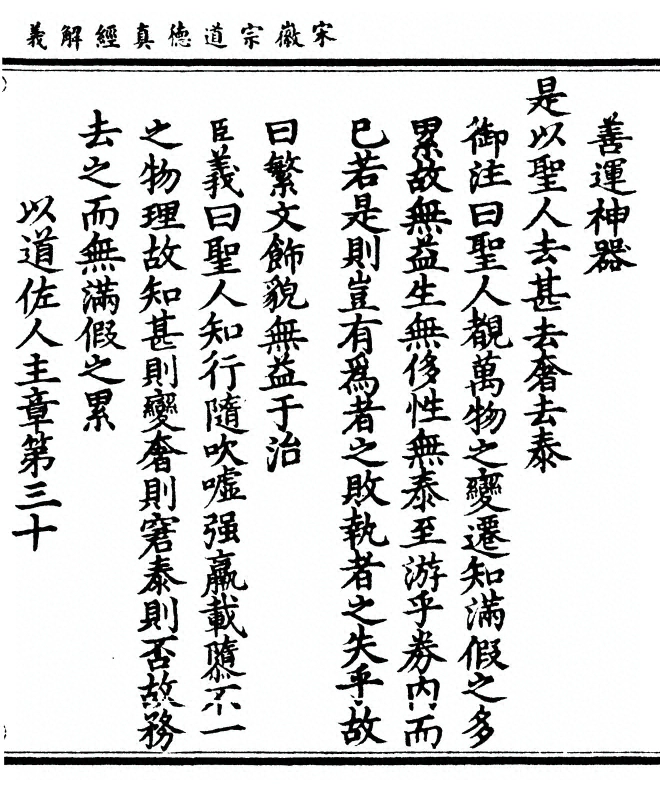 宋徽宗道德真經解義
善運神器
是以聖人去甚去奢去泰
御注曰聖人覩萬物之變遷知滿假之多
累故無益生無侈性無泰至游乎券内而
已若是則豈有爲者之敗執者之失乎故
曰繁文飾貌無益于治
臣義曰聖人知行隨吹噓强羸載隳不一
之物理故知甚則變奢則窘泰則否故務
去之而無滿假之累
以道佐人主章第三十